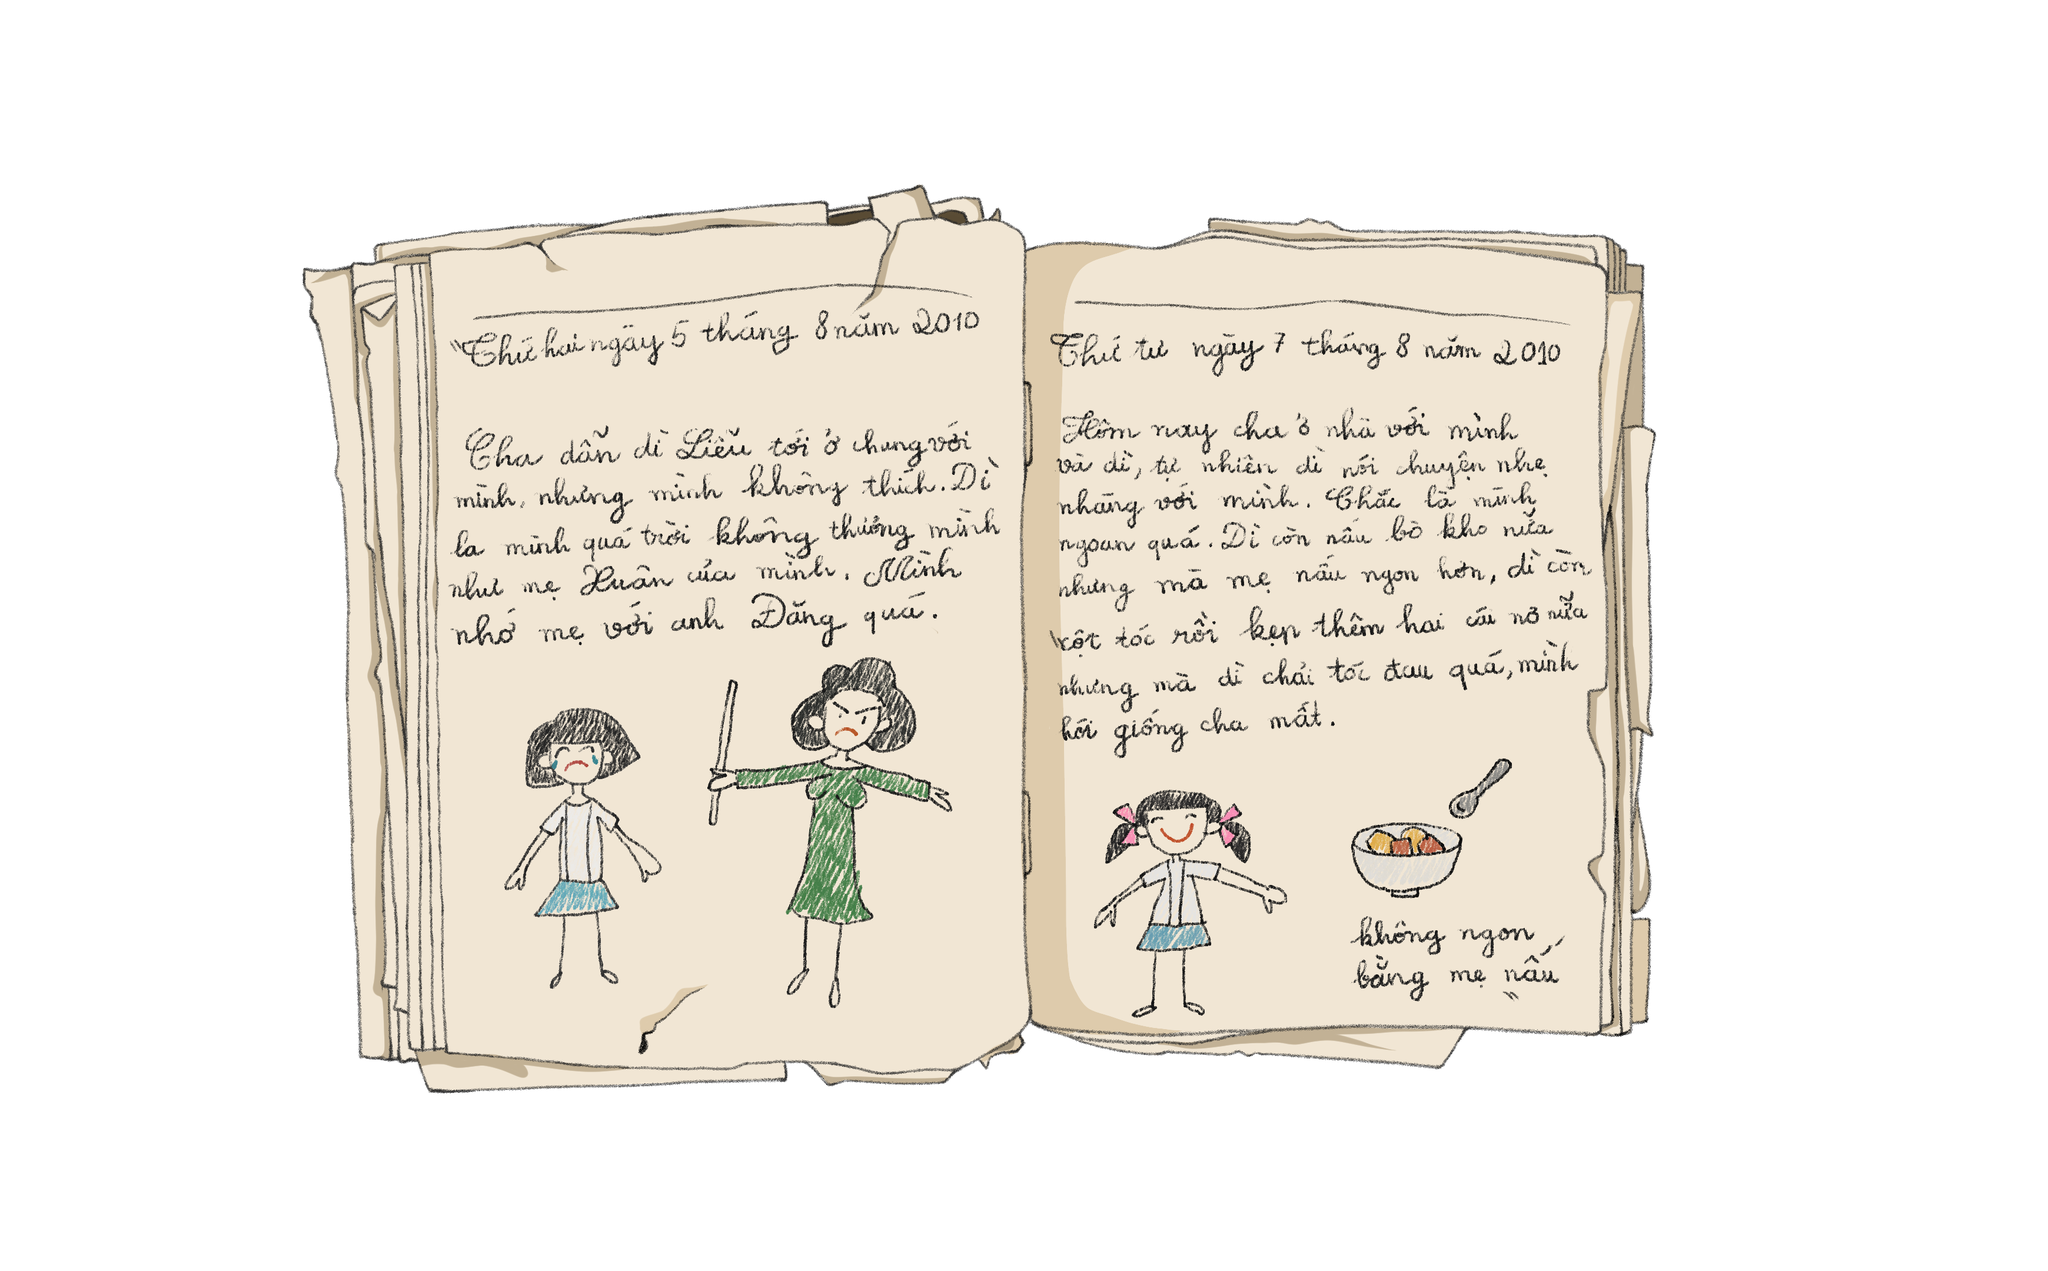 "Thứ hai ngày 5 tháng 8 năm 2010
Cha dẫn dì Liễu tới ở chung với
mình, nhưng mình không thích. Dì
la mình quá trời không thương mình
như mẹ Xuân của mình. Mình
nhớ mẹ với anh Đăng quá.
Thứ tư ngày 7 tháng 8 năm 2010
Hôm nay cha ở nhà với mình
và dì, tự nhiên dì nói chuyện nhẹ
nhàng với mình. Chắc là mình
ngoan quá. Dì còn nấu bò kho nữa
nhưng mà mẹ nấu ngon hơn, dì còn
cột tóc rồi kẹp thêm hai cái nơ nữa
nhưng mà dì chải tóc đau quá, mình
hói giống cha mất.
không ngon
bằng mẹ nấu"